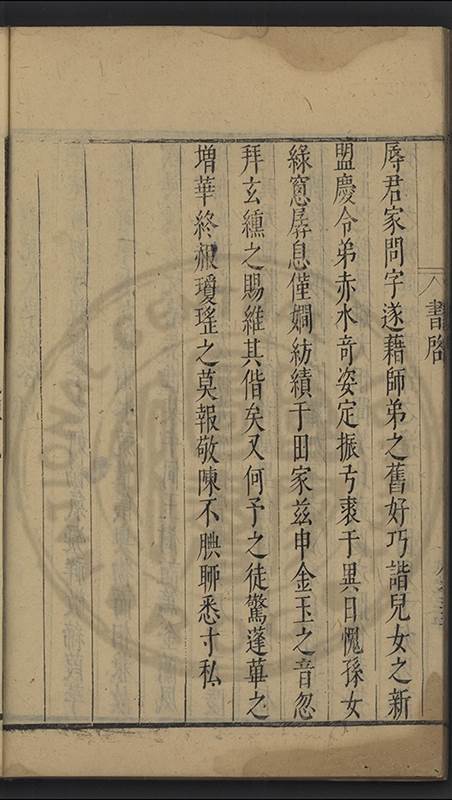 書啓
辱君家問字遂藉師弟之舊好巧諧兒女之新
盟慶令弟赤水奇姿定振弓裘于異日愧孫女
綠窻孱息僅嫻紡績于田家兹申金玉之音忽
拜玄纁之賜維其偕矣又何予之徒驚蓬蓽之
增華終赧瓊瑤之莫報敬陳不腆聊悉寸私